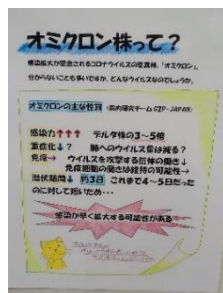 オミクロン株って？
感染拡大が懸念されるコロナウイルスの変異株、「オミクロン」。
分からないことも多いですが、どんなウイルスなのでしょうか。
オミクロンの主な性質（国内研究チーム G2P-JAPAN）
感染力↑↑↑ デルタ株の3～5倍
重症化↓？ 肺へのウイルス量は減る？
免疫→ ウイルスを攻撃する抗体の働き↓
免疫細胞の働きは維持の可能性→
潜伏期間↓ 約3日 これまで4～5日だった
のに対して短いため・・・
感染が早く拡大する可能性がある